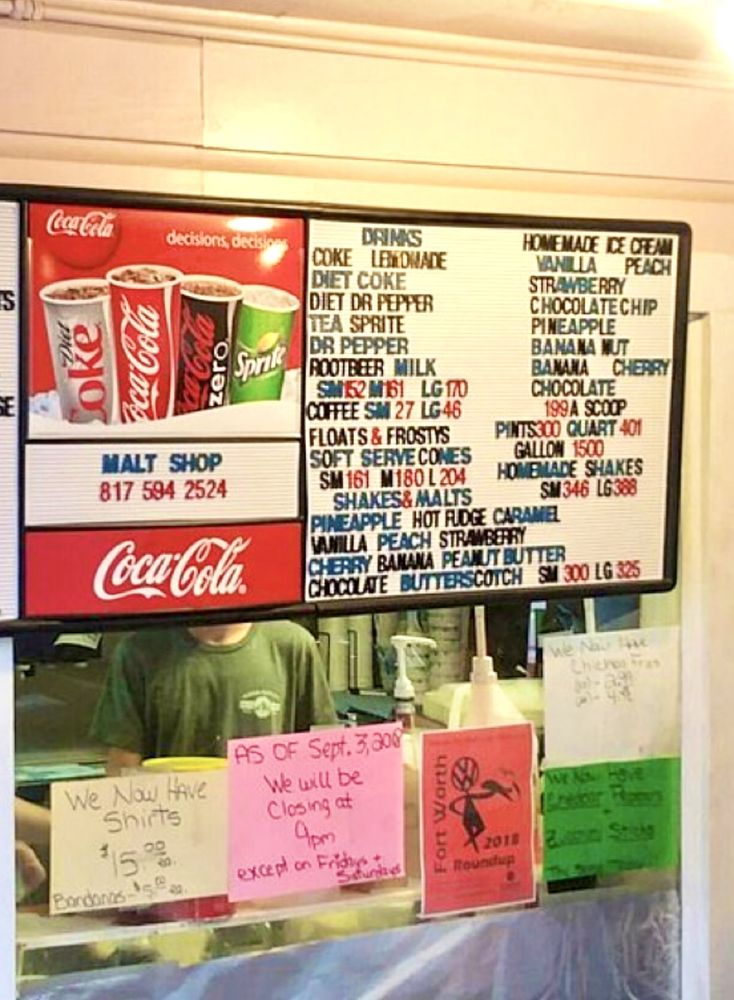 Coca-Cola
decisions, decisions
Diet Coke
Coca-Cola
Coca-Cola zero
Sprite
MALT SHOP
817 594 2524
Coca-Cola
DRINKS
COKE LEMONADE
DIET COKE
DIET DR PEPPER
TEA SPRITE
DR PEPPER
ROOTBEER MILK
SM 152 M 161 LG 170
COFFEE SM 27 LG 46
FLOATS & FROSTYS
SOFT SERVE CONES
SM 161 M 180 L 204
SHAKES & MALTS
PINEAPPLE HOT FUDGE CARAMEL
VANILLA PEACH STRAWBERRY
CHERRY BANANA PEANUT BUTTER
CHOCOLATE BUTTERSCOTCH SM 300 LG 325
HOMEMADE ICE CREAM
VANILLA PEACH
STRAWBERRY
CHOCOLATE CHIP
PINEAPPLE
BANANA NUT
BANANA CHERRY
CHOCOLATE
199 A SCOOP
PINTS 300 QUART 401
GALLON 1500
HOMEMADE SHAKES
SM 346 LG 388
We Now Have
Shirts
$15.00 ea.
Bandanas - $5.00 ea.
AS OF Sept. 3, 2018
We will be
Closing at
9pm
except on Fridays +
Saturdays
Fort Worth
2018
Roundup
We Now Have
Chicken Fries
We Now Have